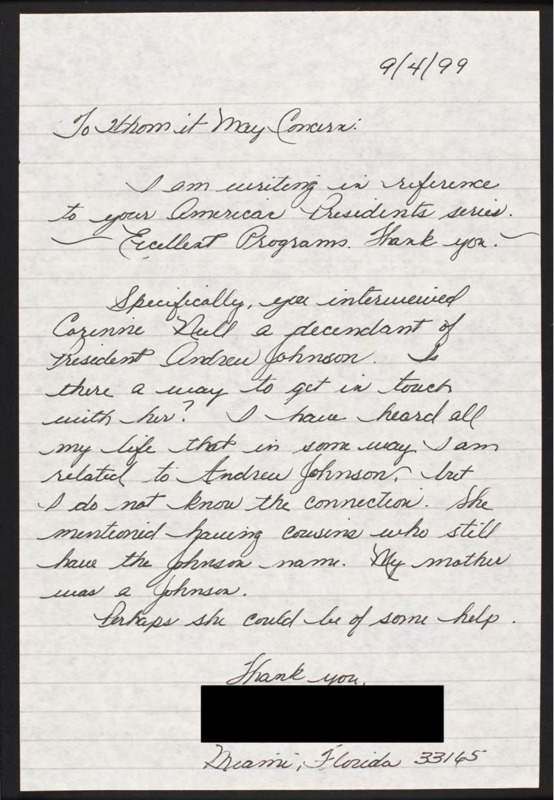 9/4/99
To Whom it May Concern:
I am writing in reference
to your American Presidents series.
— Excellent Programs. Thank you. —
Specifically, you interviewed
Corinne Null a decendant of
President Andrew Johnson. Is
there a way to get in touch
with her? I have heard all
my life that in some way I am
related to Andrew Johnson, but
I do not know the connection. She
mentioned having cousins who still
have the Johnson name. My mother
was a Johnson.
Perhaps she could be of some help.
Thank you,
Miami, Florida 33165